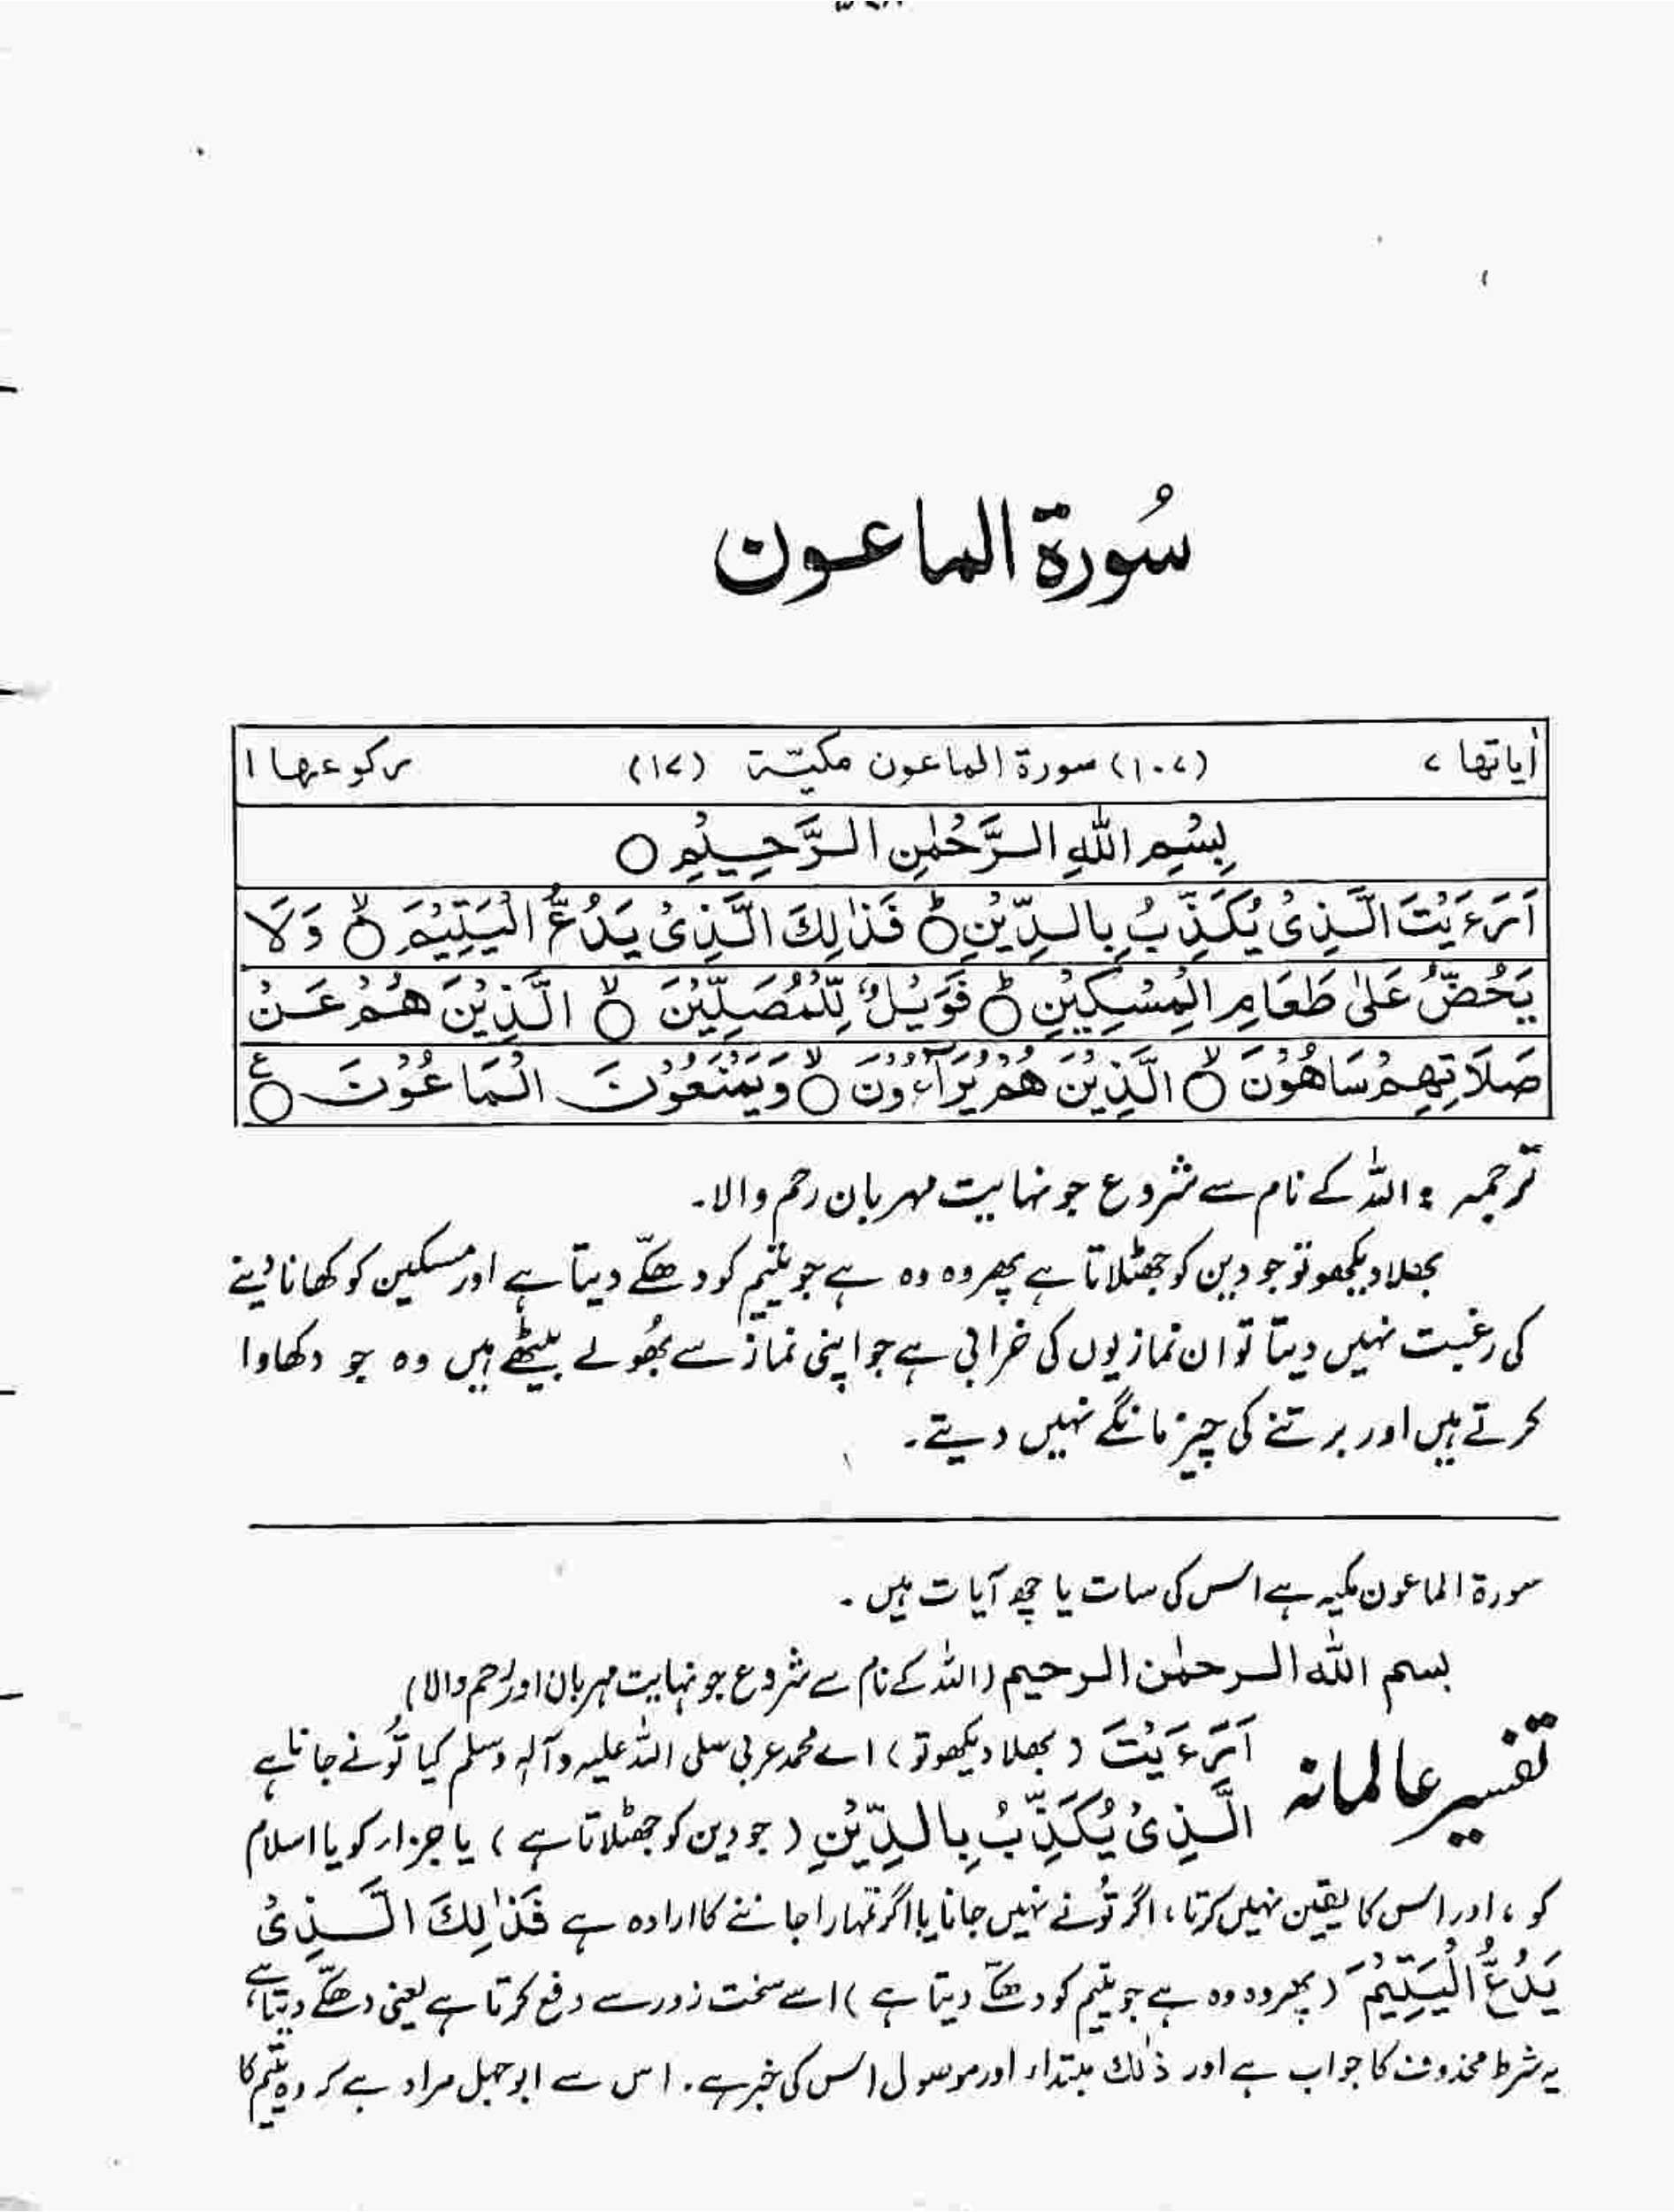 سُورة الماعون
اٰیاتها ۷ (۱۰۷) سورة الماعون مکیّة (۱۷) رکوعها ۱
بِسْمِ اللهِ الرَّحْمٰنِ الرَّحِیْمِ ○
اَرَءَیْتَ الَّذِیْ یُکَذِّبُ بِالدِّیْنِ ○ؕ فَذٰلِكَ الَّذِیْ یَدُعُّ الْیَتِیْمَ ○ۙ وَلَا
یَحُضُّ عَلٰی طَعَامِ الْمِسْکِیْنِ ○ؕ فَوَیْلٌ لِّلْمُصَلِّیْنَ ○ۙ الَّذِیْنَ هُمْ عَنْ
صَلَاتِهِمْ سَاهُوْنَ ○ۙ الَّذِیْنَ هُمْ یُرَآءُوْنَ ○ۙ وَیَمْنَعُوْنَ الْمَاعُوْنَ ○ع
ترجمہ : اللہ کے نام سے شروع جو نہایت مہربان رحم والا۔
بھلا دیکھو تو جو دین کو جھٹلاتا ہے پھر وہ وہ ہے جو یتیم کو دھکّے دیتا ہے اور مسکین کو کھانا دینے
کی رغبت نہیں دیتا تو ان نمازیوں کی خرابی ہے جو اپنی نماز سے بھُولے بیٹھے ہیں وہ جو دکھاوا
کرتے ہیں اور برتنے کی چیز مانگے نہیں دیتے۔
سورۃ الماعون مکیہ ہے اس کی سات یا چھ آیات ہیں ۔
بسم اللہ الرحمٰن الرحیم (اللہ کے نام سے شروع جو نہایت مہربان اور رحم والا)
تفسیر عالمانہ اَرَءَیْتَ ( بھلا دیکھو تو ) اے محمد عربی صلی اللہ علیہ وآلہٖ وسلم کیا تُو نے جانا ہے
الَّذِیْ یُکَذِّبُ بِالدِّیْنِ ( جو دین کو جھٹلاتا ہے ) یا جزار کو یا اسلام
کو ، اور اس کا یقین نہیں کرتا ، اگر تُو نے نہیں جانا یا اگر تمہارا جاننے کا ارادہ ہے فَذٰلِكَ الَّذِیْ
یَدُعُّ الْیَتِیْمَ ( پھر وہ وہ ہے جو یتیم کو دھکّے دیتا ہے ) اسے سخت زور سے دفع کرتا ہے یعنی دھکّے دیتا ہے،
یہ شرط محذوف کا جواب ہے اور ذٰلک مبتداء اور موصول اس کی خبر ہے۔ اس سے ابوجہل مراد ہے کہ وہ یتیم کا